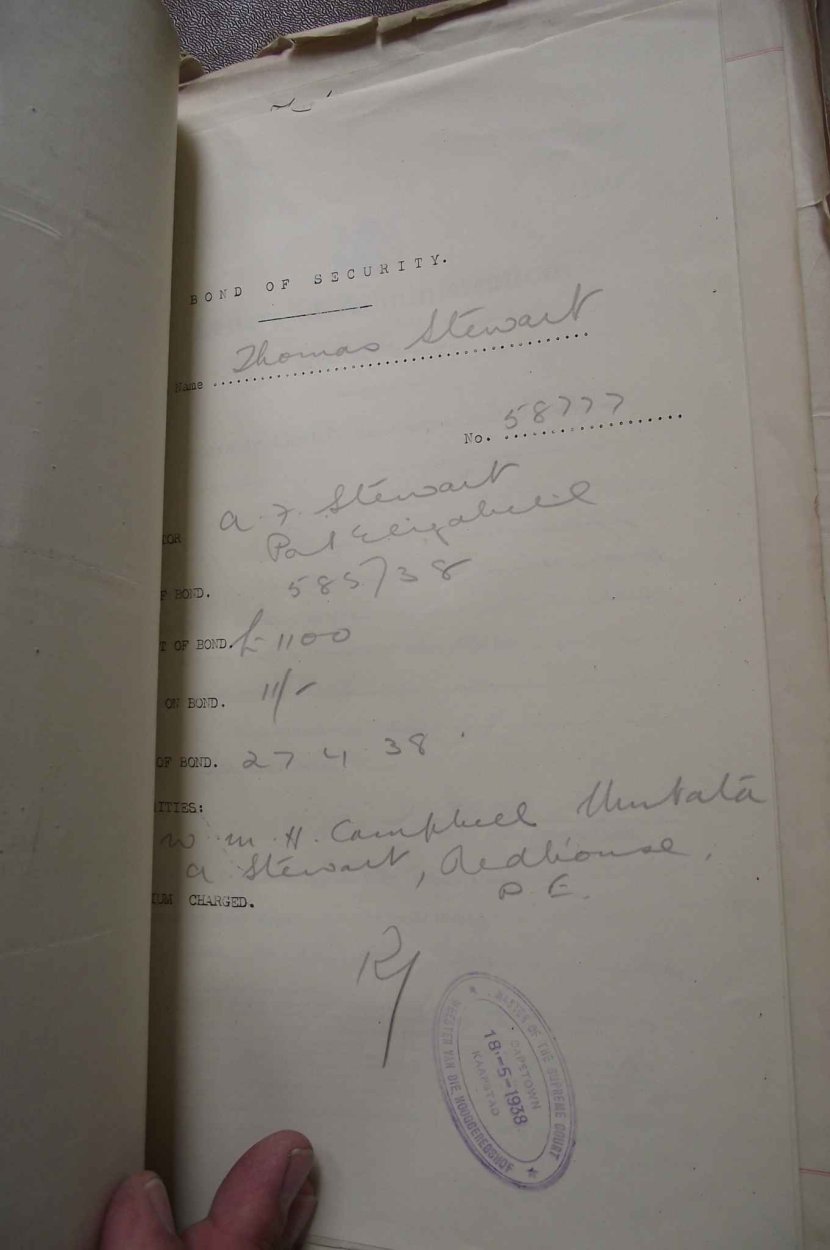 BOND OF SECURITY.
Name Thomas Stewart
No. 58777
OR A. F. Stewart
Port Elizabeth
F BOND. 585/38
T OF BOND. £1100
ON BOND. 11/-
OF BOND. 27 4 38
ITIES:
W. M. H. Campbell Umtata
A Stewart, Redhouse,
P. E.
UM CHARGED.
MASTER OF THE SUPREME COURT
CAPETOWN
18-5-1938
KAAPSTAD
MEESTER VAN DIE HOOGGEREGSHOF